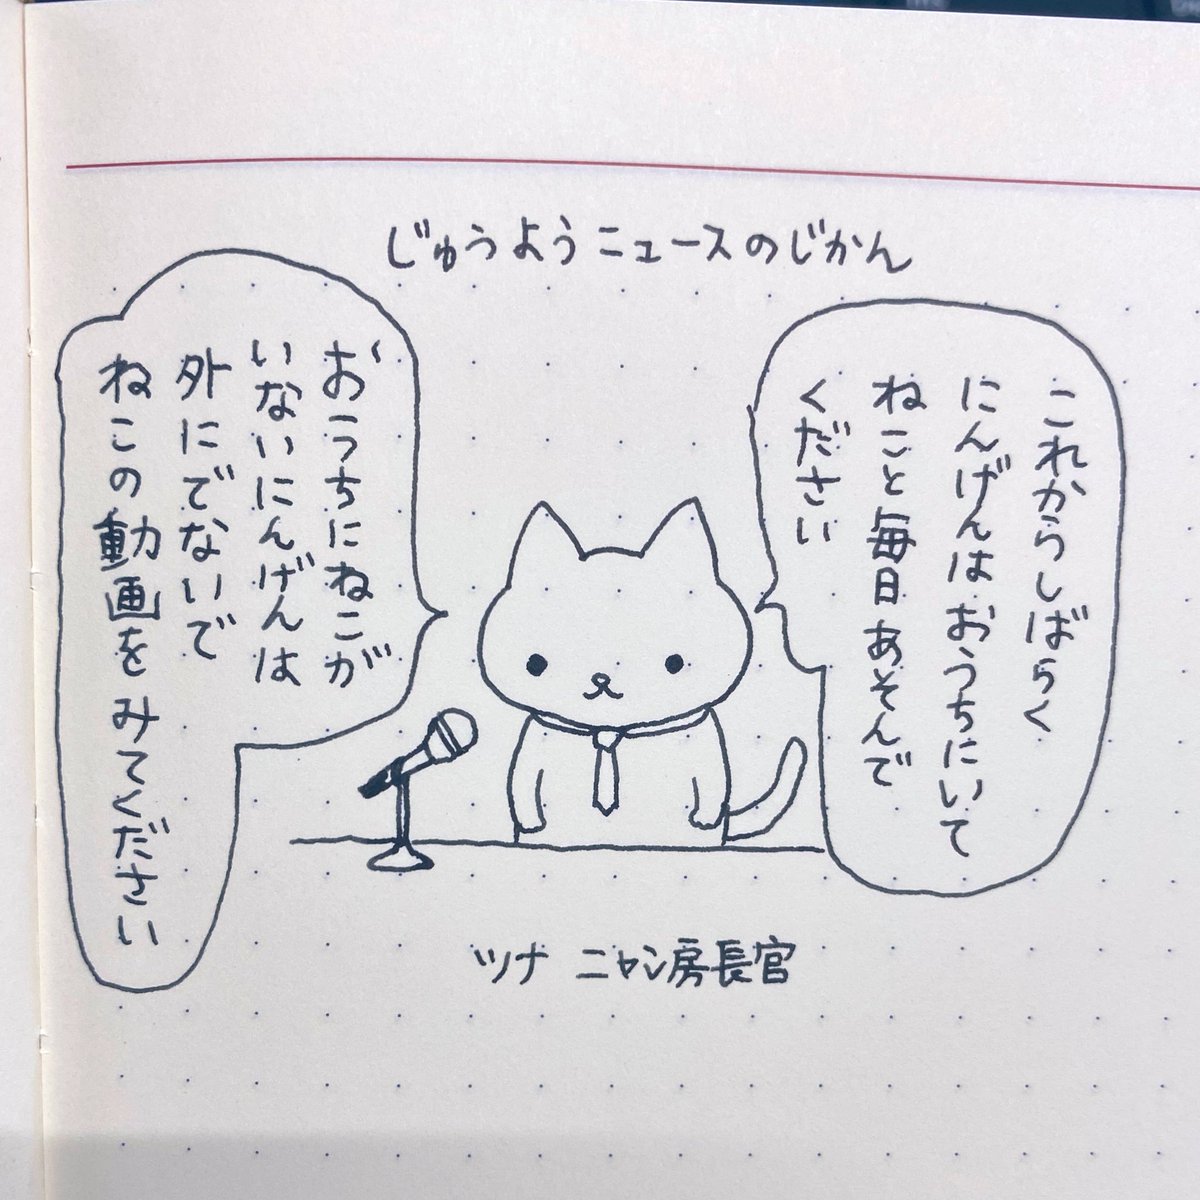 じゅうようニュースのじかん
これからしばらく
にんげんはおうちにいて
ねこと毎日あそんで
ください
おうちにねこが
いないにんげんは
外にでないで
ねこの動画をみてください
ツナ ニャン房長官